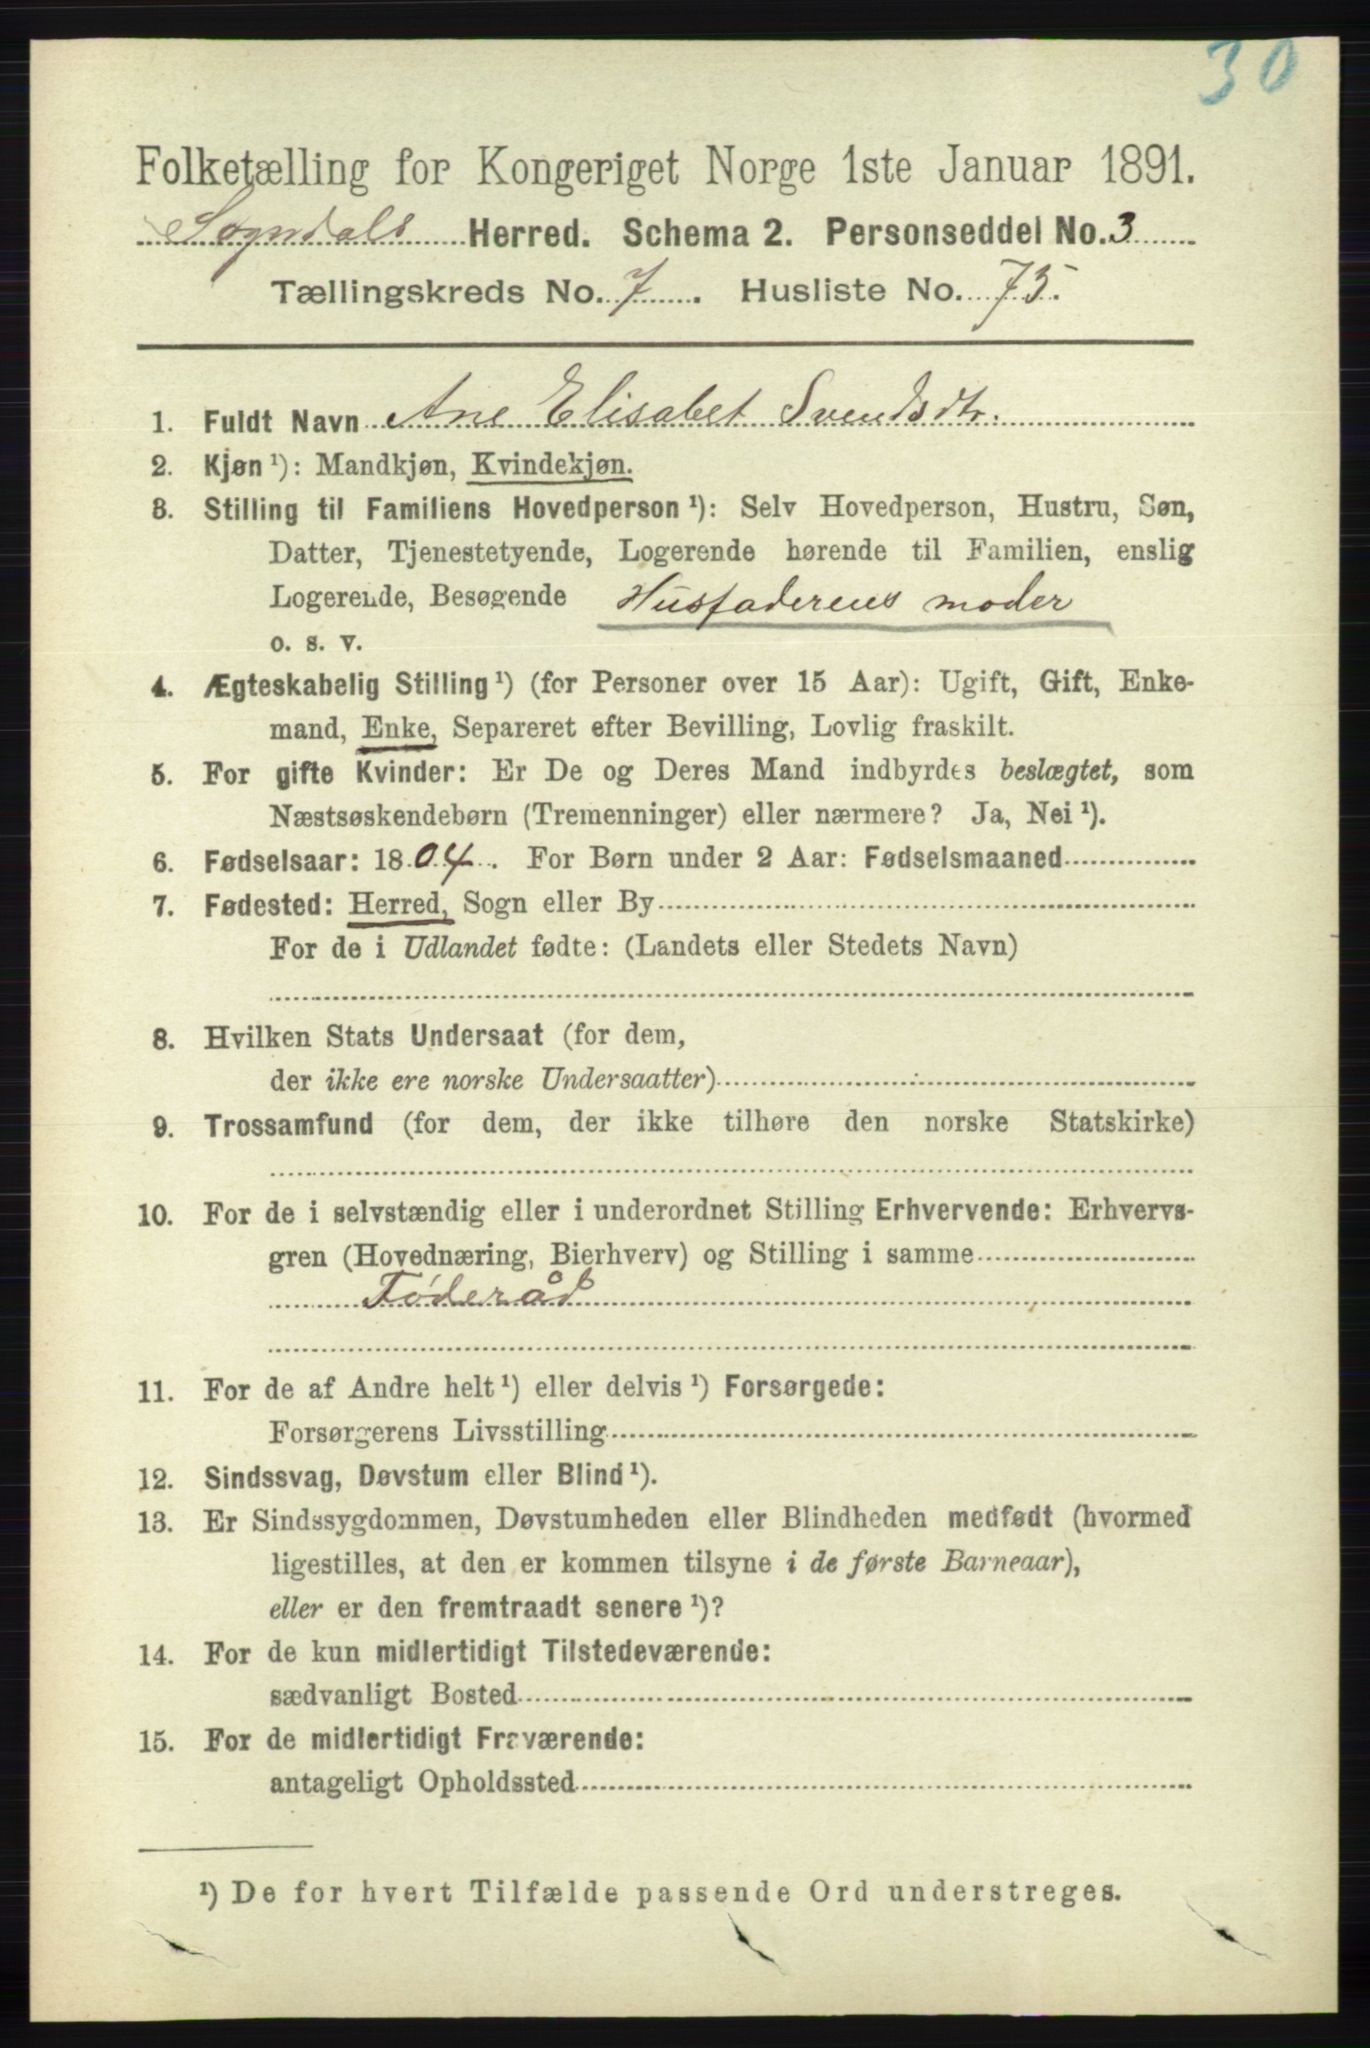 30
Folketælling for Kongeriget Norge 1ste Januar 1891.
Sogndals Herred. Schema 2. Personseddel No. 3
Tællingskreds No. 7. Husliste No. 75.
1. Fuldt Navn Ane Elisabet Svendsdtr.
2. Kjøn ¹): Mandkjøn, Kvindekjøn.
3. Stilling til Familiens Hovedperson ¹): Selv Hovedperson, Hustru, Søn,
Datter, Tjenestetyende, Logerende hørende til Familien, enslig
Logerende, Besøgende Husfaderens moder
o. s. v.
4. Ægteskabelig Stilling ¹) (for Personer over 15 Aar): Ugift, Gift, Enke-
mand, Enke, Separeret efter Bevilling, Lovlig fraskilt.
5. For gifte Kvinder: Er De og Deres Mand indbyrdes beslægtet, som
Næstsøskendebørn (Tremenninger) eller nærmere? Ja, Nei ¹).
6. Fødselsaar: 1804. For Børn under 2 Aar: Fødselsmaaned
7. Fødested: Herred, Sogn eller By
For de i Udlandet fødte: (Landets eller Stedets Navn)
8. Hvilken Stats Undersaat (for dem,
der ikke ere norske Undersaatter)
9. Trossamfund (for dem, der ikke tilhøre den norske Statskirke)
10. For de i selvstændig eller i underordnet Stilling Erhvervende: Erhvervs-
gren (Hovednæring, Bierhverv) og Stilling i samme
Føderåd
11. For de af Andre helt ¹) eller delvis ¹) Forsørgede:
Forsørgerens Livsstilling
12. Sindssvag, Døvstum eller Blind ¹).
13. Er Sindssygdommen, Døvstumheden eller Blindheden medfødt (hvormed
ligestilles, at den er kommen tilsyne i de første Barneaar),
eller er den fremtraadt senere ¹)?
14. For de kun midlertidigt Tilstedeværende:
sædvanligt Bosted
15. For de midlertidigt Fraværende:
antageligt Opholdssted
¹) De for hvert Tilfælde passende Ord understreges.